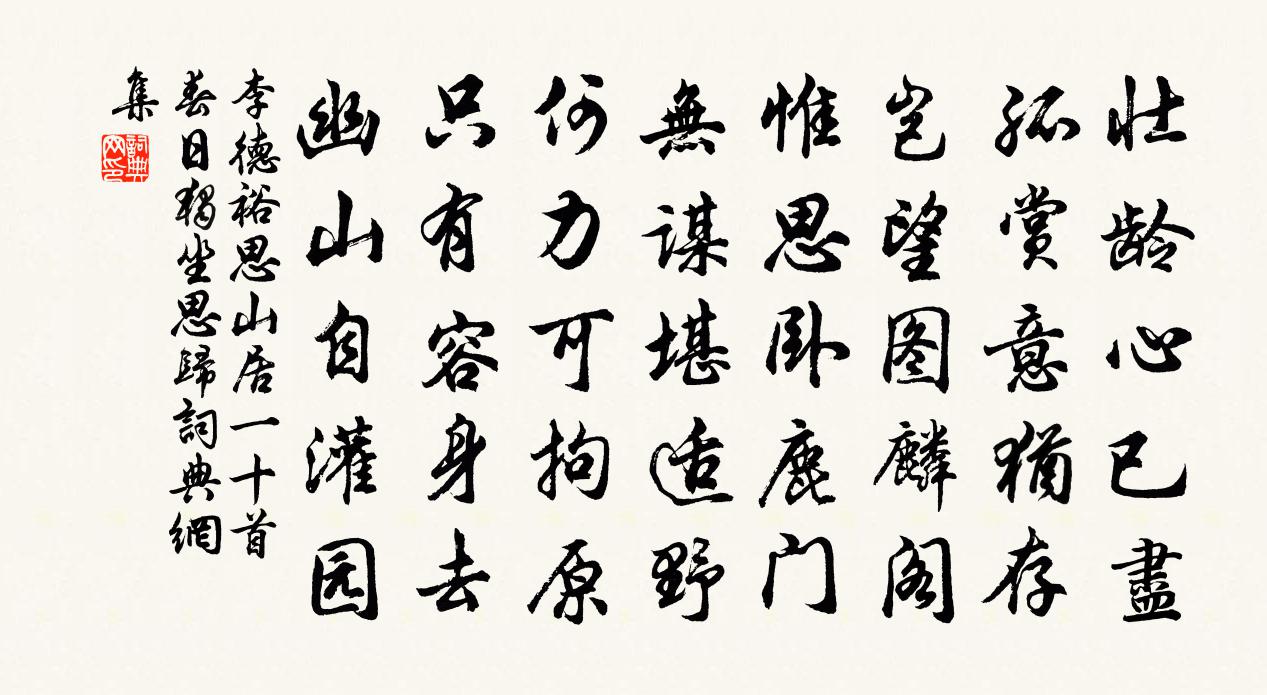 壮龄心已盡
孤赏意猶存
岂望图麟阁
惟思卧鹿门
無谋堪适野
何力可拘原
只有容身去
幽山自灌园
李德裕思山居一十首
春日独坐思歸詞典網
集
詞典
网印